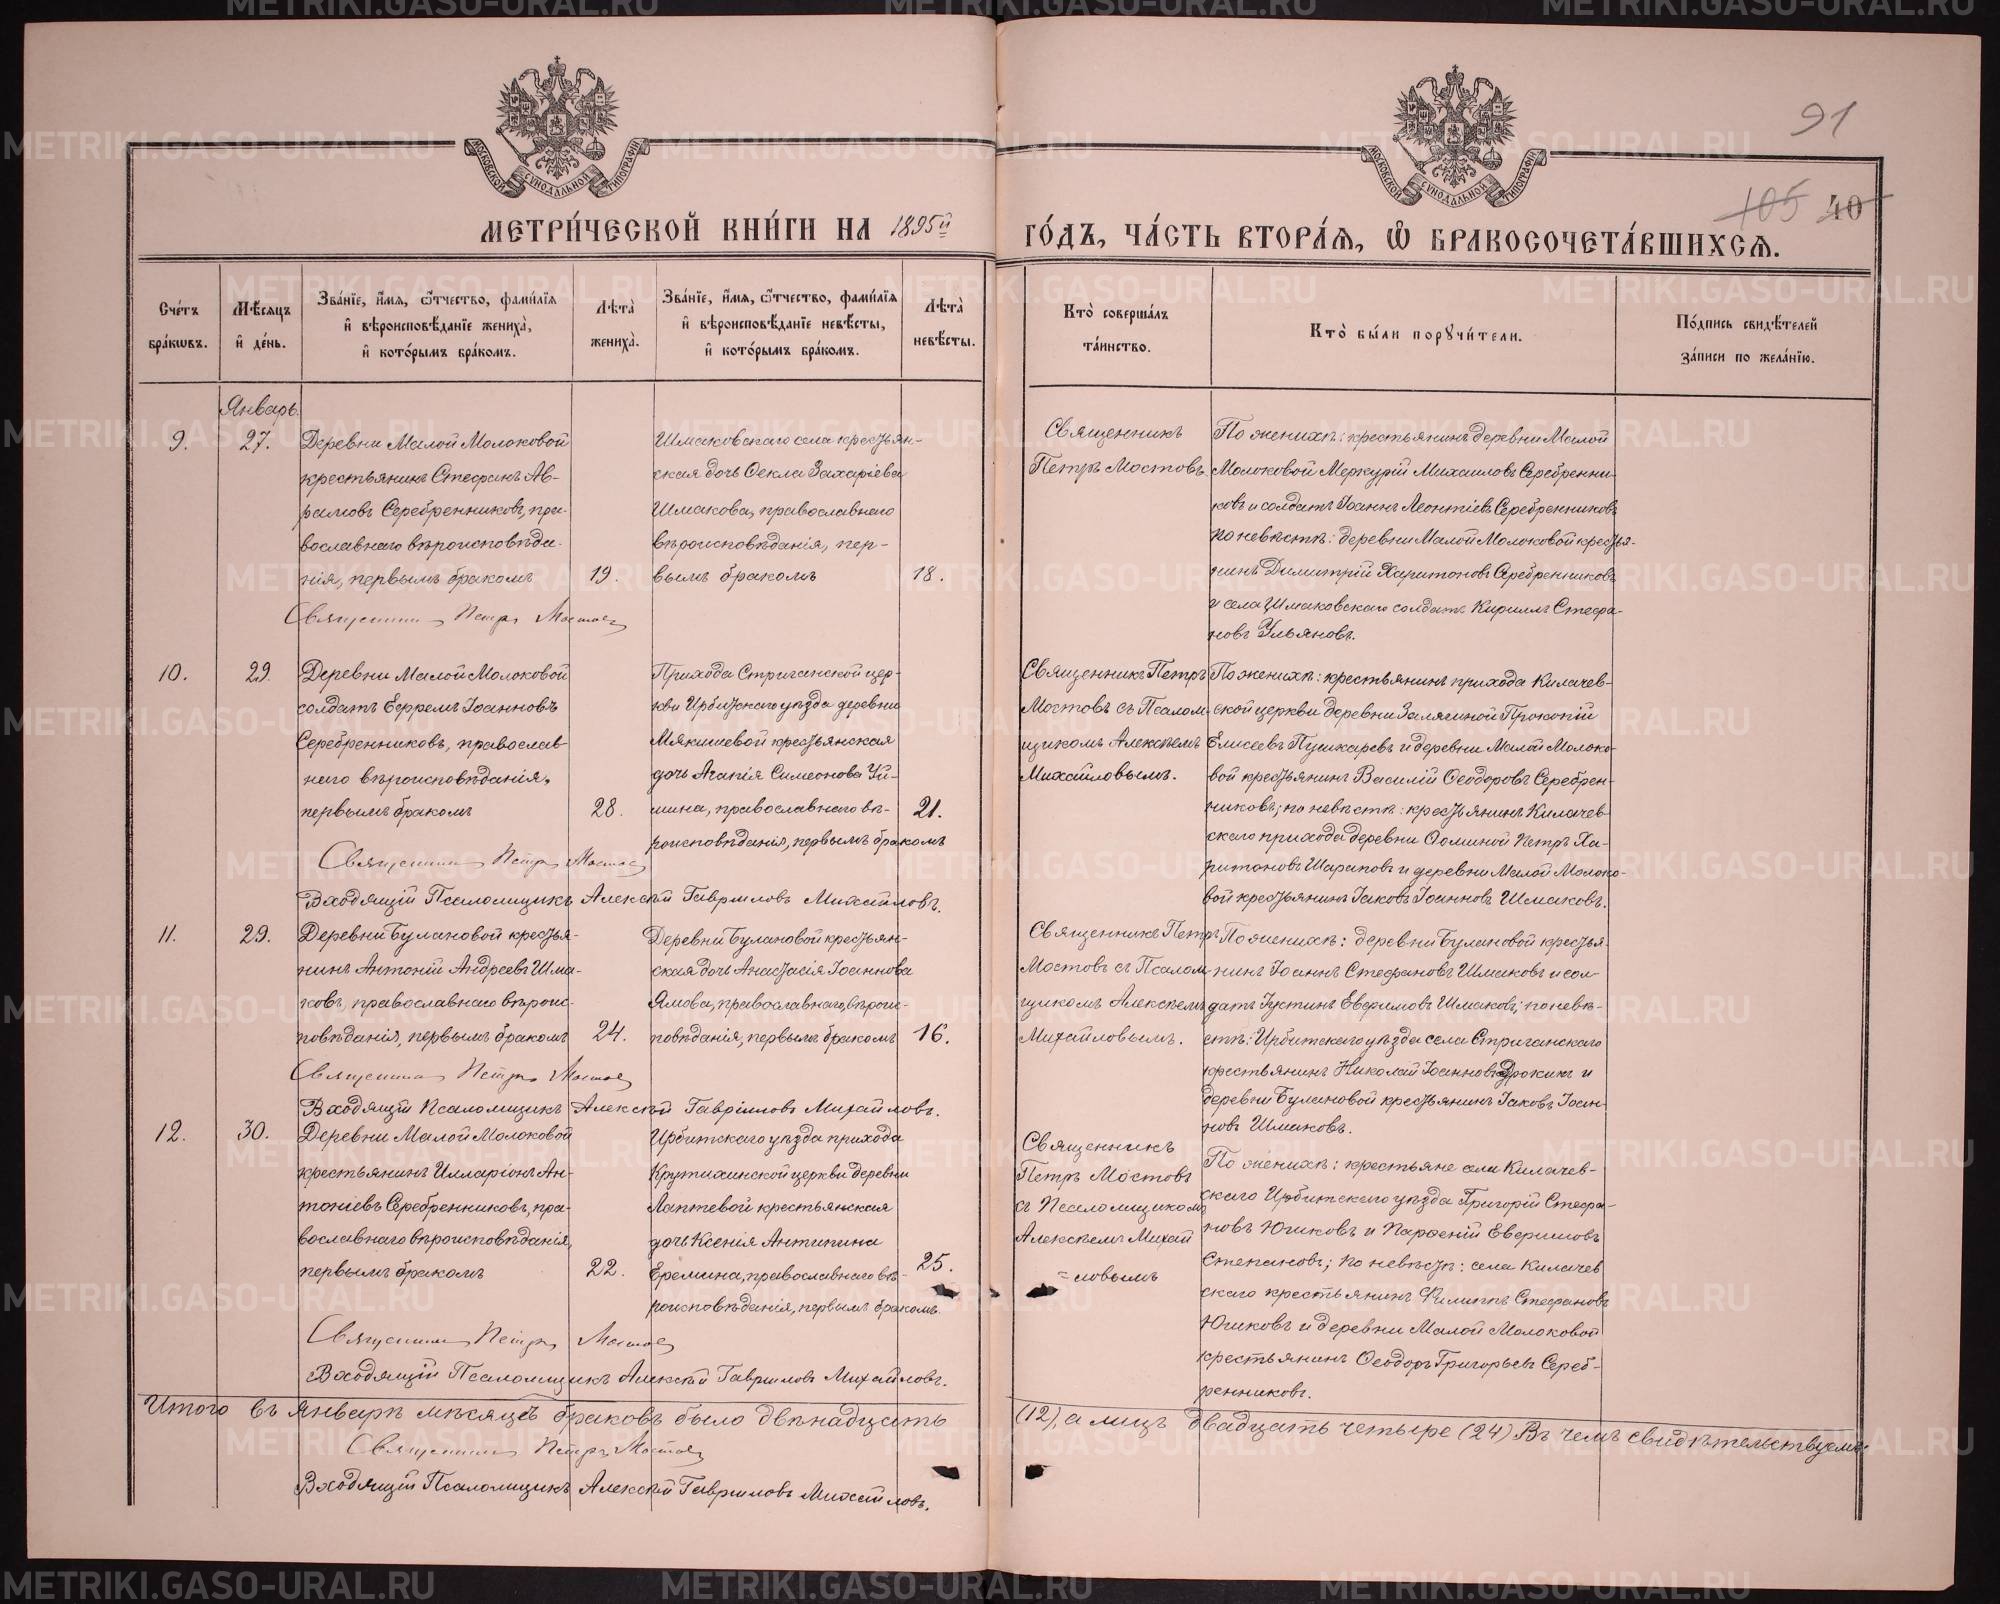 91
105 40
МОСКОВСКОЙ СУНОДАЛЬНОЙ ТИПОГРАФІИ
МОСКОВСКОЙ СУНОДАЛЬНОЙ ТИПОГРАФІИ
МЕТРИ́ЧЕСКОЙ КНИ́ГИ НА 1895й
ГО́ДЪ, ЧА́СТЬ ВТОРА́Я, Ѽ БРАКОСОЧЕТА́ВШИХСѦ.
Сче́тъ бра́кωвъ.
Мѣ́сяцъ и҆ де́нь.
Зва́нїе, и҆́мя, ѻ҆́тчество, фами́лїя
и҆ вѣроисповѣ́данїе жениха̀,
и҆ кото́рымъ бра́комъ.
Лѣта̀ жениха̀.
Зва́нїе, и҆́мя, ѻ҆́тчество, фами́лїя
и҆ вѣроисповѣ́данїе невѣ́сты,
и҆ кото́рымъ бра́комъ.
Лѣта̀ невѣ́сты.
Кто̀ соверша́лъ
та́инство.
Кто̀ бы́ли порꙋчи́тели.
По́дпись свидѣ́телей
за́писи по жела́нїю.
Январь.
9.
27.
Деревни Малой Молоковой
крестьянинъ Стефанъ Ав-
рамовъ Серебренниковъ, пра-
вославнаго вѣроисповѣда-
нія, первымъ бракомъ
19.
Священникъ Петръ Мостовъ
Шмаковскаго села крестьян-
ская дочь Ѳекла Захаріева
Шмакова, православнаго
вѣроисповѣданія, пер-
вымъ бракомъ
18.
Священникъ
Петръ Мостовъ.
По женихѣ: крестьянинъ деревни Малой
Молоковой Меркурій Михаиловъ Серебренни-
ковъ и солдатъ Іоаннъ Леонтіевъ Серебренниковъ
по невѣстѣ: деревни Малой Молоковой крестья-
нинъ Димитрій Харитоновъ Серебренниковъ
и села Шмаковскаго солдатъ Кириллъ Стефа-
новъ Ульяновъ.
10.
29.
Деревни Малой Молоковой
солдатъ Ефремъ Іоанновъ
Серебренниковъ, православ-
наго вѣроисповѣданія,
первымъ бракомъ
28.
Священникъ Петръ Мостовъ
Входящій Псаломщикъ Алексѣй Гавриловъ Михайловъ.
Прихода Стриганской цер-
кви Ирбитскаго уѣзда деревни
Мякишевой крестьянская
дочь Агапія Симеонова Уй-
мина, православнаго вѣ-
роисповѣданія, первымъ бракомъ
21.
Священникъ Петръ
Мостовъ съ Псалом-
щикомъ Алексѣемъ
Михайловымъ.
По женихѣ: крестьянинъ прихода Килачев-
ской церкви деревни Залягиной Прокопій
Елисеевъ Пушкаревъ и деревни Малой Молоко-
вой крестьянинъ Василій Ѳеодоровъ Серебрен-
никовъ; по невѣстѣ: крестьянинъ Килачев-
скаго прихода деревни Ѳоминой Петръ Ха-
ритоновъ Шараповъ и деревни Малой Молоко-
вой крестьянинъ Іаковъ Іоанновъ Шмаковъ.
11.
29.
Деревни Булановой крестья-
нинъ Антоній Андреевъ Шма-
ковъ, православнаго вѣроис-
повѣданія, первымъ бракомъ
24.
Священникъ Петръ Мостовъ
Входящій Псаломщикъ Алексѣй Гавріиловъ Михайловъ.
Деревни Булановой крестьян-
ская дочь Анастасія Іоаннова
Ямова, православнаго вѣроис-
повѣданія, первымъ бракомъ
16.
Священникъ Петръ
Мостовъ съ Псалом-
щикомъ Алексѣемъ
Михайловымъ.
По женихѣ: деревни Булановой крестья-
нинъ Іоаннъ Стефановъ Шмаковъ и сол-
датъ Іустинъ Евфимовъ Шмаковъ; по невѣ-
стѣ: Ирбитскаго уѣзда села Стриганскаго
крестьянинъ Николай Іоанновъ и
деревни Булановой крестьянинъ Іаковъ Іоан-
новъ Шмаковъ.
12.
30.
Деревни Малой Молоковой
крестьянинъ Илларіонъ Ан-
тоніевъ Серебренниковъ, пра-
вославнаго вѣроисповѣданія,
первымъ бракомъ
22.
Священникъ Петръ Мостовъ
Входящій Псаломщикъ Алексѣй Гавриловъ Михайловъ.
Ирбитскаго уѣзда прихода
Крутихинской церкви деревни
Лаптевой крестьянская
дочь Ксенія Антипина
Еремина, православнаго вѣ-
роисповѣданія, первымъ бракомъ.
25.
Священникъ
Петръ Мостовъ
съ Псаломщикомъ
Алексѣемъ Михай
=ловымъ
По женихѣ: крестьяне села Килачев-
скаго Ирбитскаго уѣзда Григорій Стефа-
новъ Югиковъ и Парѳеній Евфимовъ
Степановъ; по невѣстѣ: села Килачев
скаго крестьянинъ Филиппъ Стефановъ
Югиковъ и деревни Малой Молоковой
крестьянинъ Ѳеодоръ Григорьевъ Сереб-
ренниковъ.
Итого въ январѣ мѣсяцѣ браковъ было двѣнадцать (12), а лицъ двадцать четыре (24) Въ чемъ свидѣтельствуемъ:
Священникъ Петръ Мостовъ
Входящій Псаломщикъ Алексѣй Гавриловъ Михайловъ.